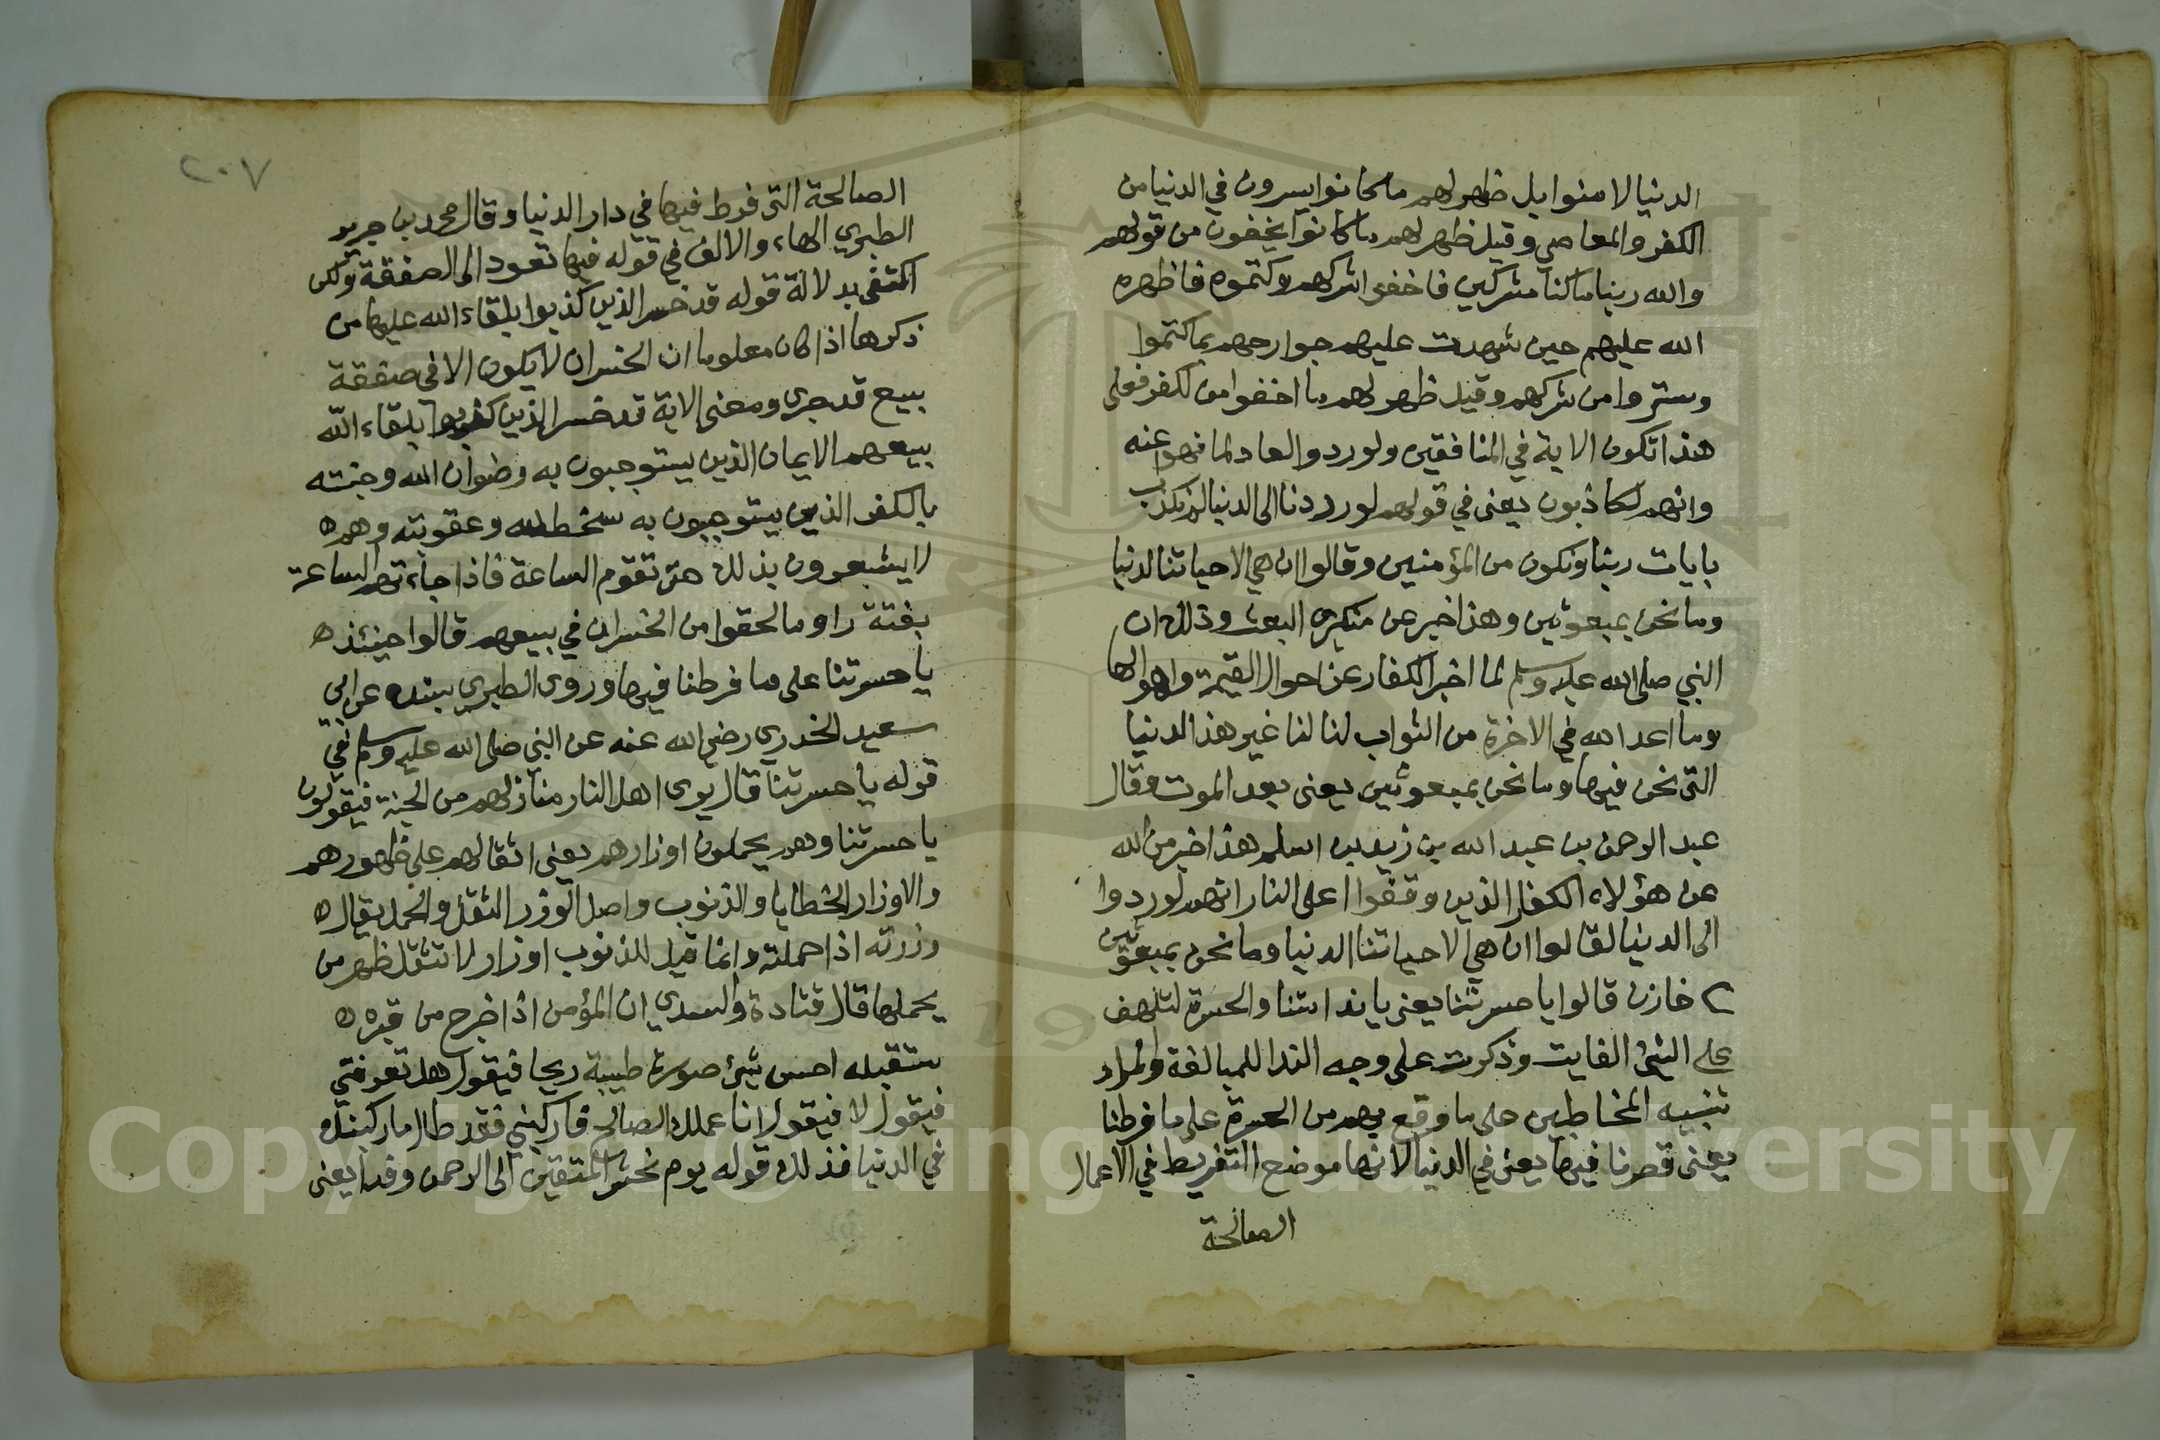 الدنيا لامنوا بل ظهر لهم ما كانوا يسرون في الدنيا من
الكفر والمعاصي وقيل ظهر لهم ما كانوا يخفون من قولهم
والله ربنا ما كنا مشركين فاخفوا شركهم وكتموه فاظهره
الله عليهم حين شهدت عليهم جوارحهم بما كتموا
وستروا من شركهم وقيل ظهر لهم ما اخفوا من الكفر فعلى
هذا تكون الاية في المنافقين ولو ردوا لعادوا لما نهوا عنه
وانهم لكاذبون يعنى في قولهم لو رددنا الى الدنيا لم نكذب
بايات ربنا ونكون من المؤمنين وقالوا ان هي الا حياتنا الدنيا
وما نحن بمبعوثين وهذا خبر عن منكرى البعث وذلك ان
النبي صلى الله عليه وسلم لما اخبر الكفار عن احوال القيمة واهوالها
وما اعد الله في الاخرة من الثواب لنا لنا غير هذا الدنيا
التى نحن فيها وما نحن بمبعوثين يعنى بعد الموت وقال
عبد الرحمن بن عبد الله بن زيد بن اسلم هذا خبر من الله
عن هؤلاء الكفار الذين وقفوا اعلى النار انهم لو ردوا
الى الدنيا لقالوا ان هي الا حياتنا الدنيا وما نحن بمبعوثين
خازن قالوا يا حسرتنا يعنى يا ندامتنا والحسرة لتلهف
على الشئ الفايت وذكرت على وجه الندا للمبالغة والمراد
تنبيه المخاطبين على ما وقع بهم من الحسرة على ما فرطنا
يعنى قصرنا فيها يعنى في الدنيا لانها موضع التفريط في الاعمال
الصالحة
٢٠٧
الصالحة التى فرط فيها في دار الدنيا وقال محمد بن جرير
الطبري الهاء والالف في قوله فيها تعود الى الصفقة ولكن
اكتفى بدلالة قوله قد خسر الذين كذبوا بلقاء الله عليها من
ذكرها اذا كان معلوما ان الخسران لا يكون الا في صفقة
بيع قد جرى ومعنى الاية قد خسر الذين كذبوا بلقاء الله
ببيعهم الايمان الذين يستوجبون به رضوان الله وجنته
بالكفر الذين يستوجبون به سخط الله وعقوبته وهم
لا يشعرون بذلك حتى تقوم الساعة فاذا جاءتهم الساعة
بغتة راوا ما لحقوا من الخسران في بيعهم قالوا حينئذ
يا حسرتنا على ما فرطنا فيها وروى الطبري بسنده عن ابى
سعيد الخدري رضي الله عنه عن النبي صلى الله عليه وسلم في
قوله يا حسرتنا قال يرى اهل النار منازلهم من الجنة فيقولون
يا حسرتنا وهم يحملون اوزارهم يعنى اثقالهم على ظهورهم
والاوزار الخطايا والذنوب واصل الوزر الثقل والحمل يقال
وزرته اذا حملته وانما قيل للذنوب اوزار لا تثقل ظهر من
يحملها قال قتادة والسدي ان المؤمن اذا خرج من قبره
ستقبله احسن شئ صورة طيبة ريحا فيقول هل تعرفني
فيقول لا فيقول انا عملك الصالح فاركبني فقد طال ما ركبتك
في الدنيا فذلك قوله يوم نحشر المتقين الى الرحمن وفدا يعنى
Copyright © King Saud University